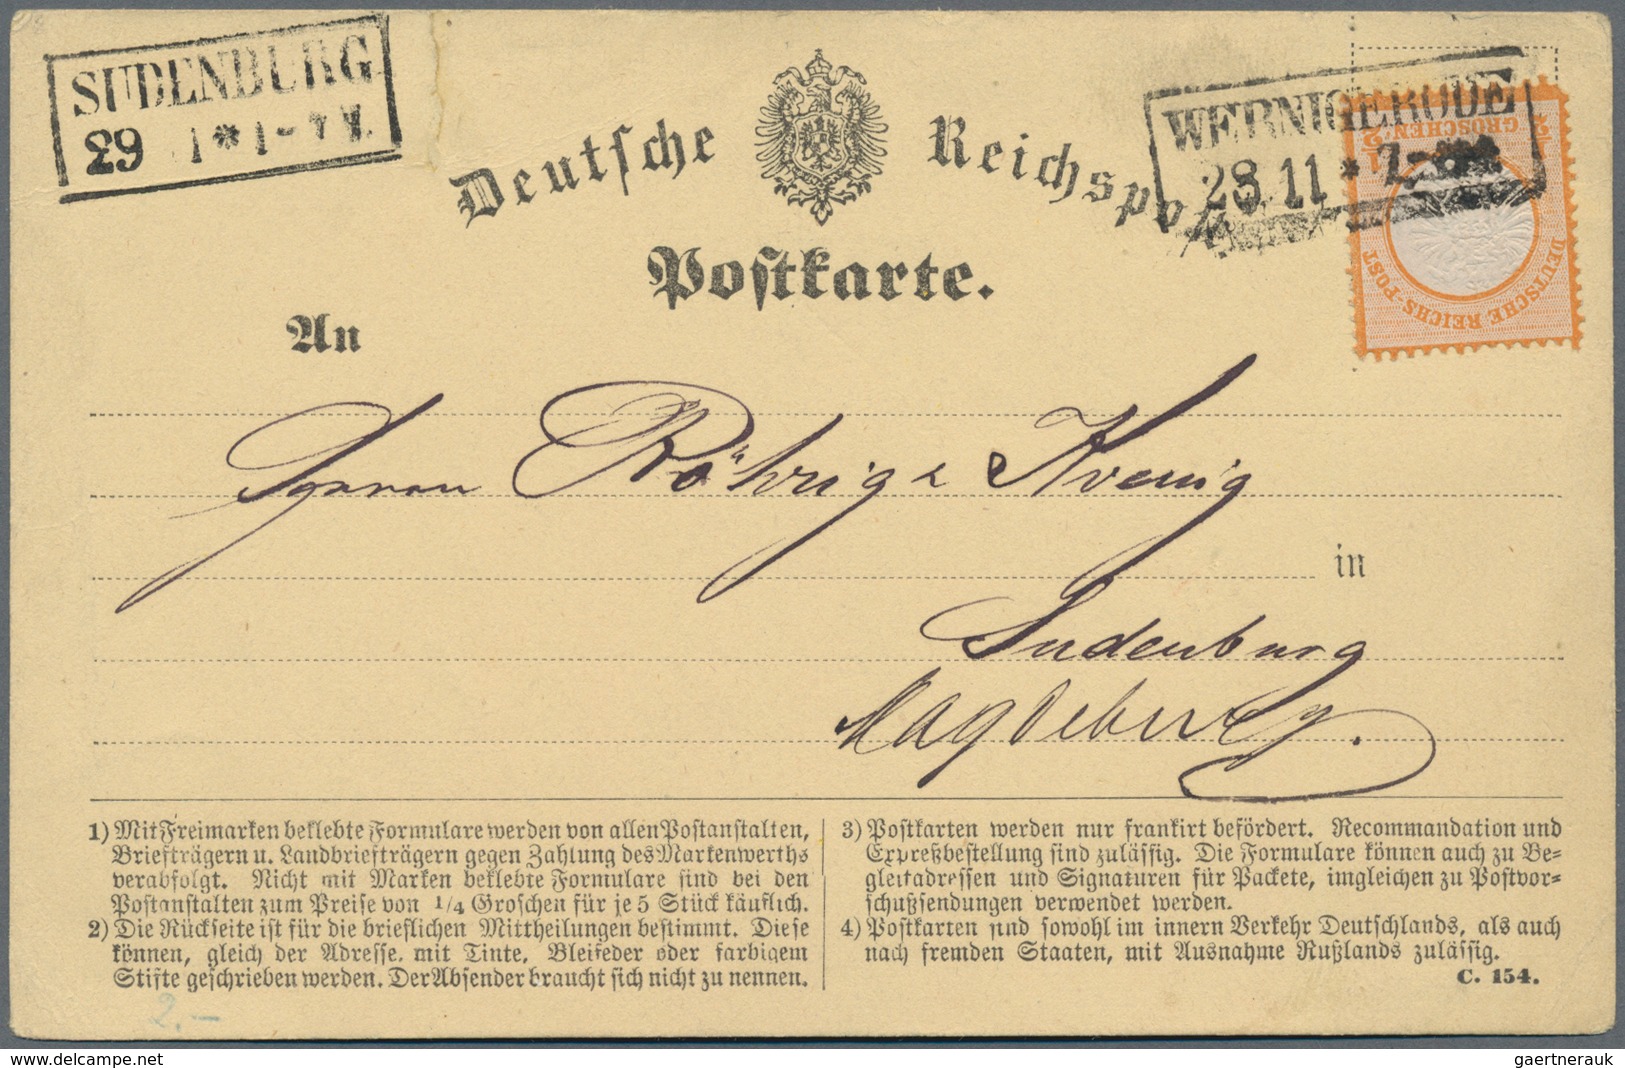 SUDENBURG
29
WERNIGERODE
28.11 *
GROSCHEN
DEUTSCHE REICHS-POST
Deutſche Reichspoſt
Poſtkarte.
An
Herren Röhrig & Koenig
in
Sudenburg
Magdeburg.
1) Mit Freimarken beklebte Formulare werden von allen Poſtanſtalten,
Briefträgern u. Landbriefträgern gegen Zahlung des Markenwerths
verabfolgt. Nicht mit Marken beklebte Formulare ſind bei den
Poſtanſtalten zum Preiſe von 1/4 Groſchen für je 5 Stück käuflich.
2) Die Rückſeite iſt für die brieflichen Mittheilungen beſtimmt. Dieſe
können, gleich der Adreſſe, mit Tinte, Bleifeder oder farbigem
Stifte geſchrieben werden. Der Abſender braucht ſich nicht zu nennen.
3) Poſtkarten werden nur frankirt befördert. Recommandation und
Expreßbeſtellung ſind zuläſſig. Die Formulare können auch zu Be-
gleitadreſſen und Signaturen für Packete, imgleichen zu Poſtvor-
ſchußſendungen verwendet werden.
4) Poſtkarten ſind ſowohl im innern Verkehr Deutſchlands, als auch
nach fremden Staaten, mit Ausnahme Rußlands zuläſſig.
C. 154.
2.-
www.delcampe.net
gaertnerauk